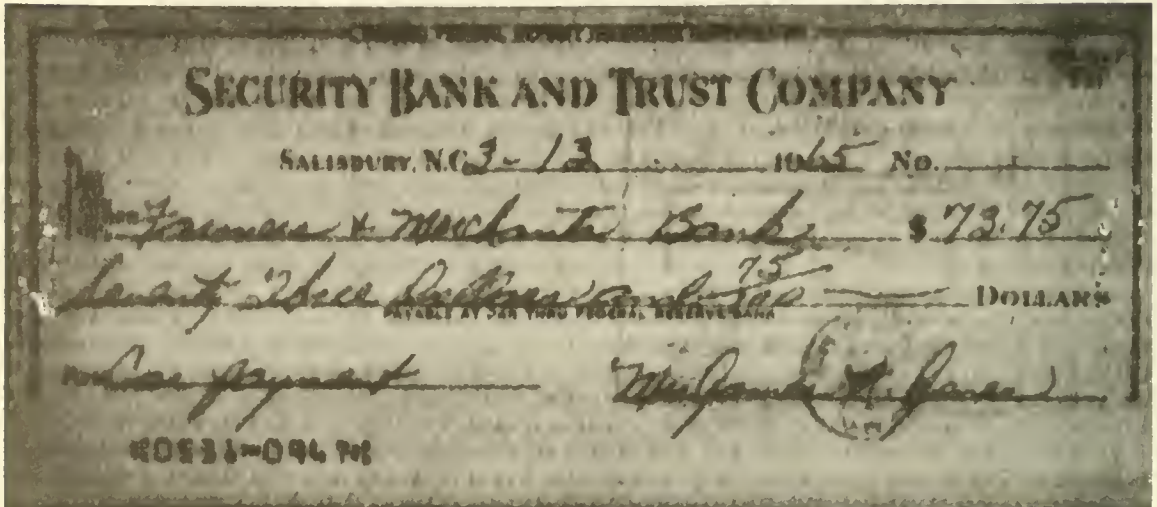 SECURITY BANK AND TRUST COMPANY
SALISBURY, N.C. 3-13 1965 No.
Farmers & Merchants Bank $ 73.75
Seventy Three Dollars and 75/100 DOLLARS
PAYABLE AT PAR THRU FEDERAL RESERVE BANK
FOR Car payment Mrs James H. Jones
⑆0531⑉0946⑆